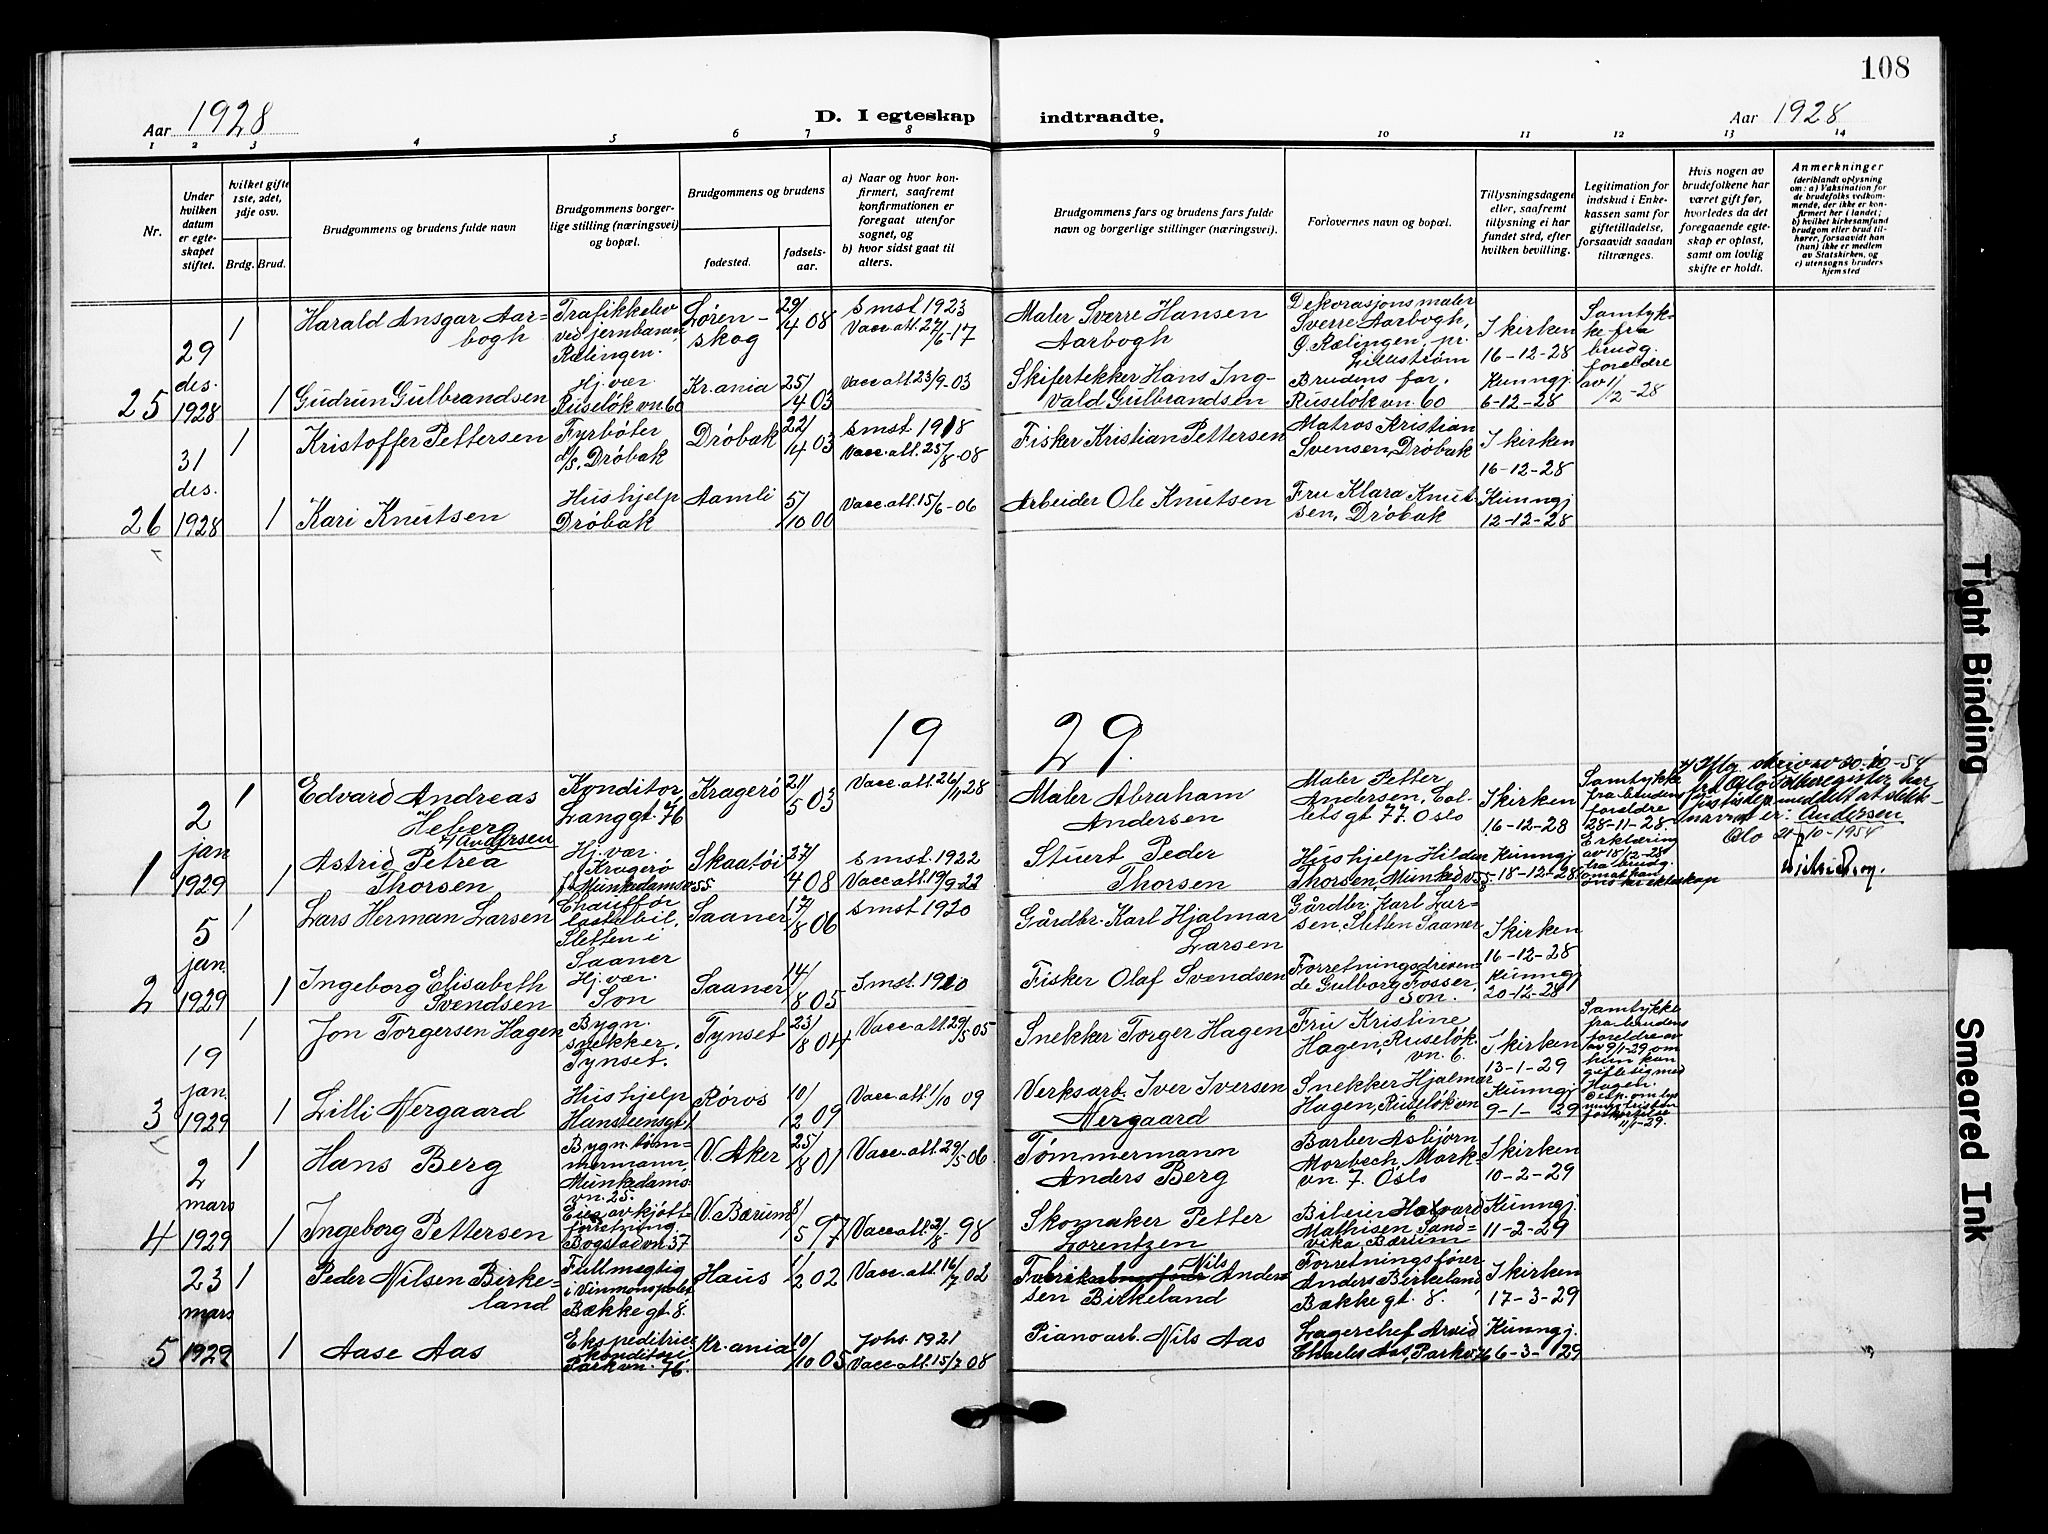 108
Aar 1928
D. I egteskap indtraadte.
Aar 1928
1 2 3 4 5 6 7 8 9 10 11 12 13 14
Nr.
Under hvilken datum er egteskapet stiftet.
hvilket gifte 1ste, 2det, 3dje osv.
Brdg. Brud.
Brudgommens og brudens fulde navn
Brudgommens borgerlige stilling (næringsvei) og bopæl.
Brudgommens og brudens
fødested.
fødselsaar.
a) Naar og hvor konfirmert, saafremt konfirmationen er foregaat utenfor sognet, og
b) hvor sidst gaat til alters.
Brudgommens fars og brudens fars fulde navn og borgerlige stillinger (næringsvei).
Forlovernes navn og bopæl.
Tillysningsdagene eller, saafremt tillysning ei har fundet sted, efter hvilken bevilling.
Legitimation for indskud i Enkekassen samt for giftetilladelse, forsaavidt saadan tiltrænges.
Hvis nogen av brudefolkene har været gift før, hvorledes da det foregaaende egteskap er opløst, samt om lovlig skifte er holdt.
Anmerkninger (deriblandt oplysning om: a) Vaksination for de brudefolks vedkommende, der ikke er konfirmert her i landet; b) hvilket kirkesamfund brudgom eller brud tilhører, forsaavidt han (hun) ikke er medlem av Statskirken, og c) utensogns bruders hjemsted
25
29 des. 1928
1 Harald Ansgar Aarbogh
Trafikkelev ved jernbanen, Rælingen.
Lørenskog
29/4 08
Smst. 1923 Vacc. att. 27/6-17
Maler Sverre Hansen Aarbogh
Dekorasjonsmaler Sverre Aarbogh, Rælingen, pr. Lillestrøm
I kirken 16-12-28
Samtykke fra brudg. foreldre av 1/12-28
1 Gudrun Gulbrandsen
Hj. vær. Ruseløkvn. 60
Kr.ania
25/4 03
Vacc. att. 23/9-03
Skifertekker Hans Ingvald Gulbrandsen
Brudens far, Ruseløkvn. 60
Kunngj. 6-12-28
26
31 des. 1928
1 Kristoffer Pettersen
Fyrbøter d/s, Drøbak
Drøbak
22/4 03
Smst. 1918 Vacc. att. 25/8-08
Fisker Kristian Pettersen
Matros Kristian Svensen, Drøbak
I kirken 16-12-28
1 Kari Knutsen
Hushjelp Drøbak
Aamli
5/10 00
Vacc. att. 15/6-06
Arbeider Ole Knutsen
Fru Klara Knutsen, Drøbak
Kunngj 12-12-28
1929.
1
2 jan 1929
1 Edvard Andreas Heberg
x/ Andersen
Konditor Langgt. 76
Kragerø
21/5 03
Vacc. att. 26/11 28
Maler Abraham Andersen
Maler Petter Andersen, Colletsgt 77. Oslo
I kirken 16-12-28
Samtykke fra brudens foreldre 28-11-28. Erklæring av 18/12-28 fra brudg.
fra Oslo Folkeregister har
er: Andersen
Oslo 10-1954
1 Astrid Petrea Thorsen
Hj. vær. Kragerø f. Munkedamsv 55.
Skaatøi
27/4 08
Smst. 1922 Vacc. att. 19/9-22
Stuert Peder Thorsen
Hushjelp Hilda Thorsen, Munkedv 55
Kunngj. 18-12-28
2
5 jan. 1929
1 Lars Herman Larsen
Chauffør lastebil, Sletten i Saaner
Saaner
17/8 06
Smst 1920
Gårdbr. Karl Hjalmar Larsen
Gårdbr. Karl Larsen, Sletten Saaner
I kirken 16-12-28
1 Ingeborg Elisabeth Svendsen
Hj. vær. Son
Saaner
14/8 05
Smst. 1920
Fisker Olaf Svendsen
Forretningsdrivende Gulborg Fosser, Son.
Kunngj 20-12-28
3
19 jan. 1929
1 Jon Torgersen Hagen
Bygn. snekker, Tynset.
Tynset
23/8 04
Vacc. att. 29/5-05
Snekker Torger Hagen
Fru Kristine Hagen, Ruseløkvn. 6.
I kirken 13-1-29
Samtykke fra brudens foreldre av 9/1-29 om hun kan gifte sig med Hagen.
1 Lilli Nergaard
Hushjelp Hansteensgt. 1
Røros
10/2 09
Vacc. att. 1/10 09
Verksarb. Iver Iversen Nergaard
Snekker Hjalmar Hagen, Ruseløkvn 6
Kunngj 9-1-29
11/1-29.
4
2 mars 1929
1 Hans Berg
Bygn. tømmermann, Munkedamsvn. 25.
V. Aker
25/8 01
Vacc. att. 29/5-06
Tømmermann Anders Berg
Barber Asbjørn Morbech, Markvn. 7. Oslo
I kirken 10-2-29
1 Ingeborg Pettersen
Eier av kjøttforretning Bogstadvn. 37
V. Bærum
8/5 97
Vacc att. 3/8-98
Skomaker Petter Lorentzen
Bileier Halvard Mathisen, Sandvika, Bærum
Kunngj. 11-2-29
5
23 mars 1929
1 Peder Nilsen Birkeland
Fullmegtig i Vinmonopolet Bækkegt. 8.
Haus
1/2 02
Vacc. att. 16/7 02
Nils Andersen Birkeland
Forretningsfører Anders Birkeland, Bækkegt. 8.
I kirken 17-3-29
1 Aase Aas
Ekspeditrice konditori Parkvn. 76.
Kr.ania
10/10 05
Johs. 1921 Vacc att. 15/7 08
Pianoarb. Nils Aas
Lagerchef Arvid Charles Aas, Parkv 76
Kunngj. 6-3-29
Tight Binding
Smeared Ink